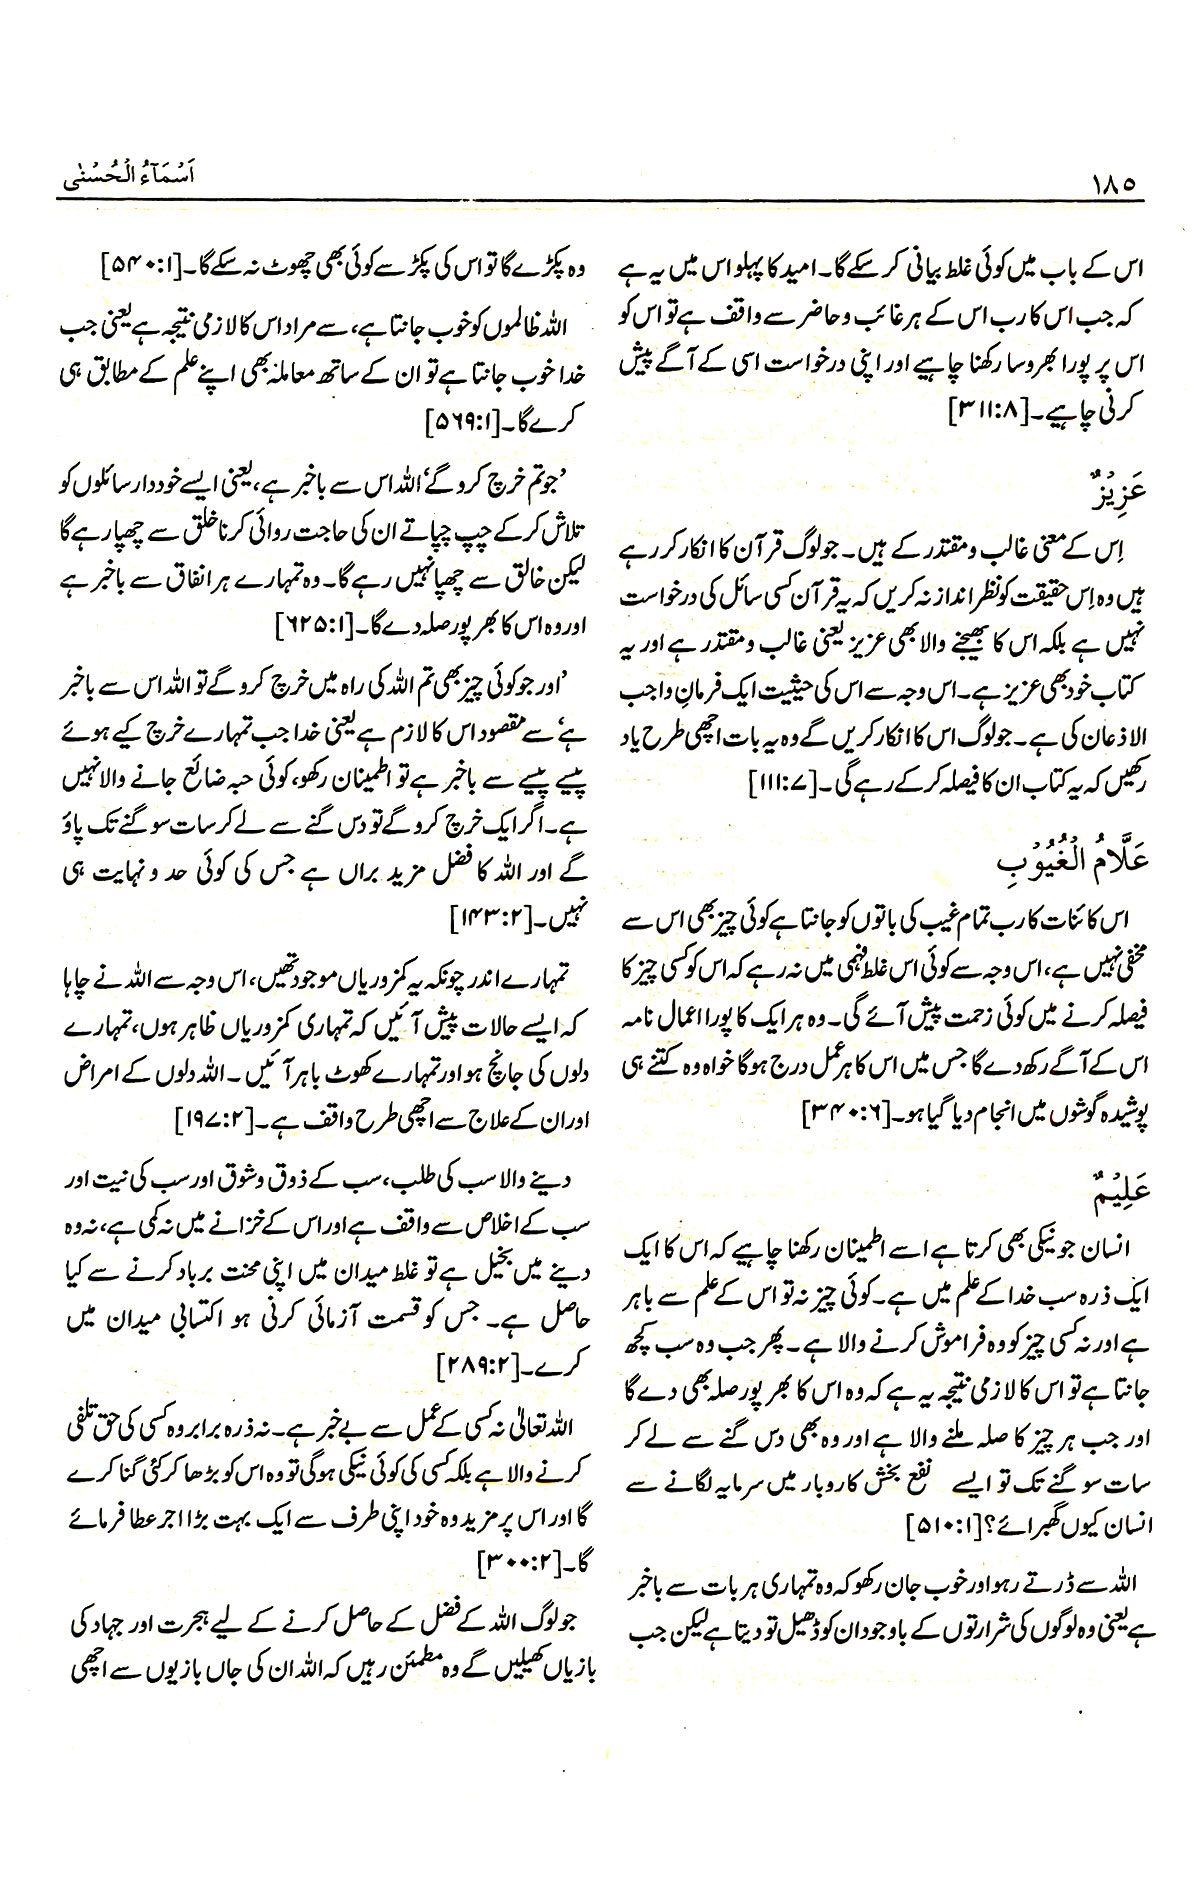 ۱۸۵
اَسْمَآءُ الْحُسْنٰی
اس کے باب میں کوئی غلط بیانی کر سکے گا۔ امید کا پہلو اس میں یہ ہے
کہ جب اس کا رب اس کے ہر غائب و حاضر سے واقف ہے تو اس کو
اس پر پورا بھروسا رکھنا چاہیے اور اپنی درخواست اسی کے آگے پیش
کرنی چاہیے۔[۳۱۱:۸]
عَزِیْزٌ
اِس کے معنی غالب و مقتدر کے ہیں۔ جو لوگ قرآن کا انکار کر رہے
ہیں وہ اِس حقیقت کو نظر انداز نہ کریں کہ یہ قرآن کسی سائل کی درخواست
نہیں ہے بلکہ اس کا بھیجنے والا بھی عزیز یعنی غالب و مقتدر ہے اور یہ
کتاب خود بھی عزیز ہے۔ اس وجہ سے اس کی حیثیت ایک فرمانِ واجب
الاذعان کی ہے۔ جو لوگ اس کا انکار کریں گے وہ یہ بات اچھی طرح یاد
رکھیں کہ یہ کتاب ان کا فیصلہ کر کے رہے گی۔[۱۱۱:۷]
عَلَّامُ الْغُیُوْبِ
اس کائنات کا رب تمام غیب کی باتوں کو جانتا ہے کوئی چیز بھی اس سے
مخفی نہیں ہے، اس وجہ سے کوئی اس غلط فہمی میں نہ رہے کہ اس کو کسی چیز کا
فیصلہ کرنے میں کوئی زحمت پیش آئے گی۔ وہ ہر ایک کا پورا اعمال نامہ
اس کے آگے رکھ دے گا جس میں اس کا ہر عمل درج ہوگا خواہ وہ کتنے ہی
پوشیدہ گوشوں میں انجام دیا گیا ہو۔[۳۴۰:۶]
عَلِیْمٌ
انسان جو نیکی بھی کرتا ہے اسے اطمینان رکھنا چاہیے کہ اس کا ایک
ایک ذرہ سب خدا کے علم میں ہے۔ کوئی چیز نہ تو اس کے علم سے باہر
ہے اور نہ کسی چیز کو وہ فراموش کرنے والا ہے۔ پھر جب وہ سب کچھ
جانتا ہے تو اس کا لازمی نتیجہ یہ ہے کہ وہ اس کا بھر پور صلہ بھی دے گا
اور جب ہر چیز کا صلہ ملنے والا ہے اور وہ بھی دس گنے سے لے کر
سات سو گنے تک تو ایسے نفع بخش کاروبار میں سرمایہ لگانے سے
انسان کیوں گھبرائے؟[۵۱۰:۱]
اللہ سے ڈرتے رہو اور خوب جان رکھو کہ وہ تمہاری ہر بات سے باخبر
ہے یعنی وہ لوگوں کی شرارتوں کے باوجود ان کو ڈھیل تو دیتا ہے لیکن جب
وہ پکڑے گا تو اس کی پکڑ سے کوئی بھی چھوٹ نہ سکے گا۔[۵۴۰:۱]
اللہ ظالموں کو خوب جانتا ہے، سے مراد اس کا لازمی نتیجہ ہے یعنی جب
خدا خوب جانتا ہے تو ان کے ساتھ معاملہ بھی اپنے علم کے مطابق ہی
کرے گا۔[۵۶۹:۱]
’جو تم خرچ کرو گے‘ اللہ اس سے باخبر ہے، یعنی ایسے خوددار سائلوں کو
تلاش کر کے چپ چپاتے ان کی حاجت روائی کرنا خلق سے چھپا رہے گا
لیکن خالق سے چھپا نہیں رہے گا۔ وہ تمہارے ہر انفاق سے باخبر ہے
اور وہ اس کا بھر پور صلہ دے گا۔[۶۲۵:۱]
’اور جو کوئی چیز بھی تم اللہ کی راہ میں خرچ کرو گے تو اللہ اس سے باخبر
ہے‘ سے مقصود اس کا لازم ہے یعنی خدا جب تمہارے خرچ کیے ہوئے
پیسے پیسے سے باخبر ہے تو اطمینان رکھو، کوئی حبہ ضائع جانے والا نہیں
ہے۔ اگر ایک خرچ کرو گے تو دس گنے سے لے کر سات سو گنے تک پاؤ
گے اور اللہ کا فضل مزید براں ہے جس کی کوئی حد و نہایت ہی
نہیں۔[۱۴۳:۲]
تمہارے اندر چونکہ یہ کمزوریاں موجود تھیں، اس وجہ سے اللہ نے چاہا
کہ ایسے حالات پیش آئیں کہ تمہاری کمزوریاں ظاہر ہوں، تمہارے
دلوں کی جانچ ہو اور تمہارے کھوٹ باہر آئیں۔ اللہ دلوں کے امراض
اور ان کے علاج سے اچھی طرح واقف ہے۔[۱۹۷:۲]
دینے والا سب کی طلب، سب کے ذوق و شوق اور سب کی نیت اور
سب کے اخلاص سے واقف ہے اور اس کے خزانے میں نہ کمی ہے، نہ وہ
دینے میں بخیل ہے تو غلط میدان میں اپنی محنت برباد کرنے سے کیا
حاصل ہے۔ جس کو قسمت آزمائی کرنی ہو اکتسابی میدان میں
کرے۔[۲۸۹:۲]
اللہ تعالیٰ نہ کسی کے عمل سے بے خبر ہے۔ نہ ذرہ برابر وہ کسی کی حق تلفی
کرنے والا ہے بلکہ کسی کی کوئی نیکی ہوگی تو وہ اس کو بڑھا کر کئی گنا کرے
گا اور اس پر مزید وہ خود اپنی طرف سے ایک بہت بڑا اجر عطا فرمائے
گا۔[۳۰۰:۲]
جو لوگ اللہ کے فضل کے حاصل کرنے کے لیے ہجرت اور جہاد کی
بازیاں کھیلیں گے وہ مطمئن رہیں کہ اللہ ان کی جاں بازیوں سے اچھی